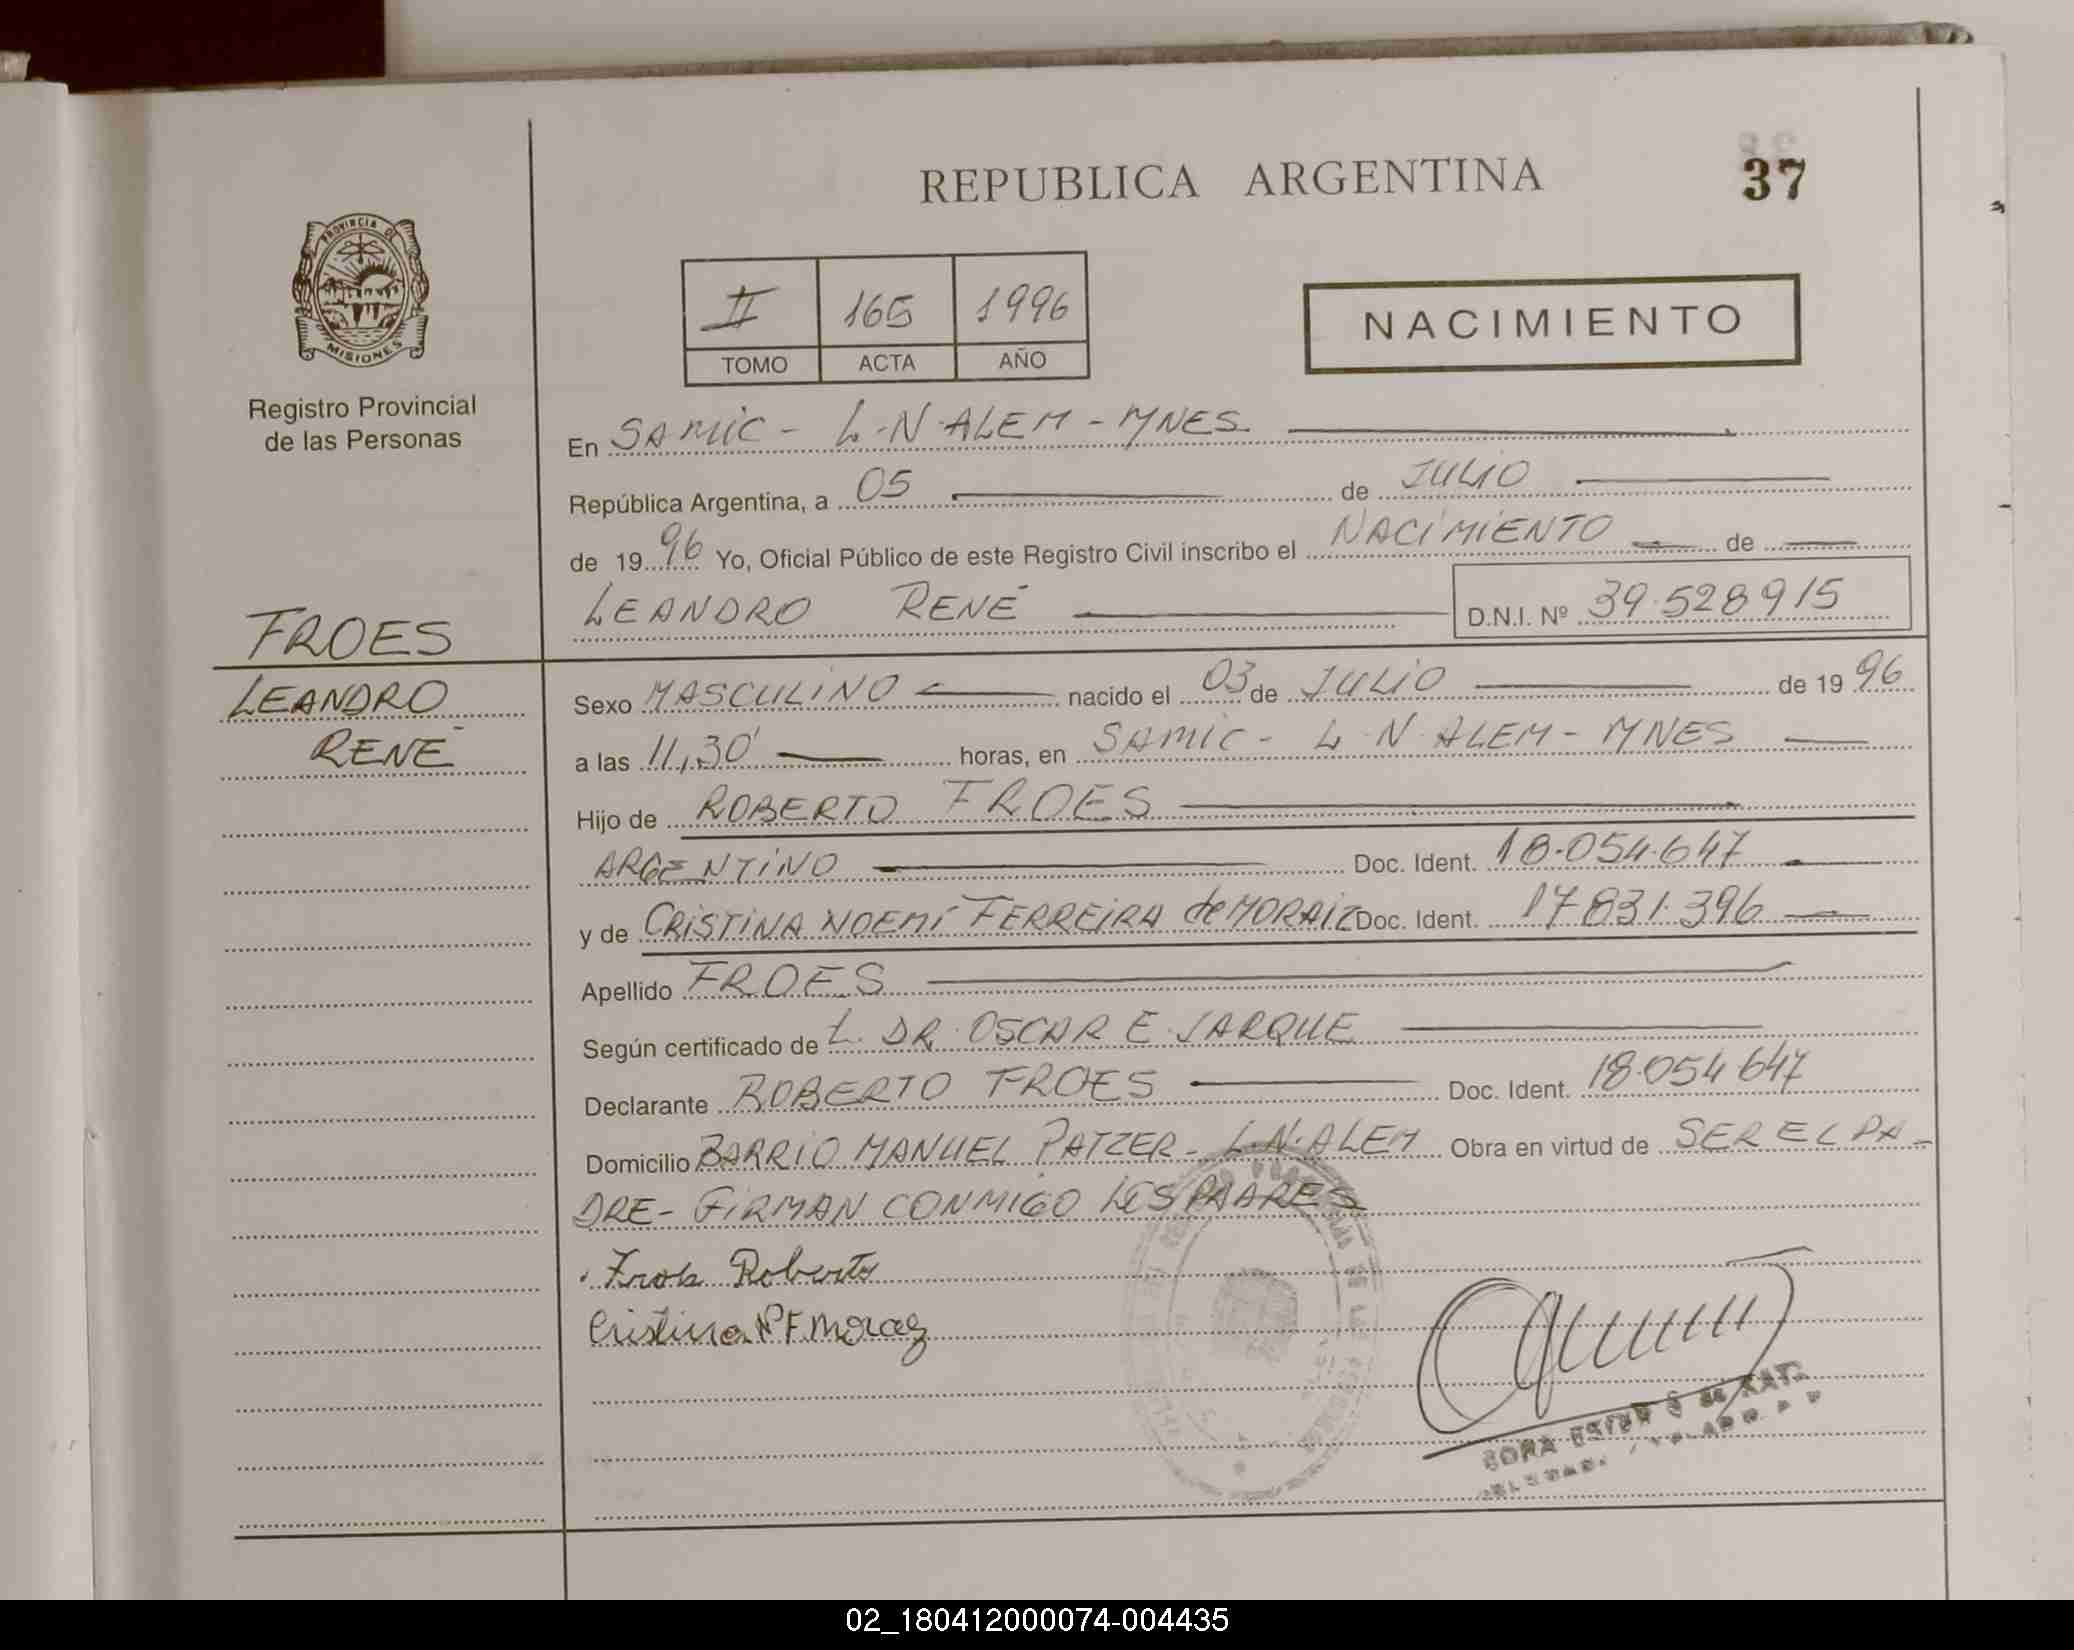 REPUBLICA ARGENTINA
37
PROVINCIA DE
MISIONES
Registro Provincial
de las Personas
II 165 1996
TOMO ACTA AÑO
NACIMIENTO
En SAMIC - L.N.ALEM - MNES.
República Argentina, a 05 de JULIO
de 1996 Yo, Oficial Público de este Registro Civil inscribo el NACIMIENTO de
LEANDRO RENÉ D.N.I. Nº 39.528915
FROES
LEANDRO
RENÉ
Sexo MASCULINO nacido el 03 de JULIO de 1996
a las 11,30' horas, en SAMIC - L.N.ALEM - MNES
Hijo de ROBERTO FROES
ARGENTINO Doc. Ident. 18.054.647
y de CRISTINA NOEMÍ FERREIRA de MORAIZ Doc. Ident. 17831.396
Apellido FROES
Según certificado de L. DR. OSCAR E. JARQUE
Declarante ROBERTO FROES Doc. Ident. 18.054.647
Domicilio BARRIO MANUEL PATZER - L.N.ALEM Obra en virtud de SER EL PA-
DRE - FIRMAN CONMIGO LOS PADRES
Roberto
Cristina N F Moraz
02_180412000074-004435